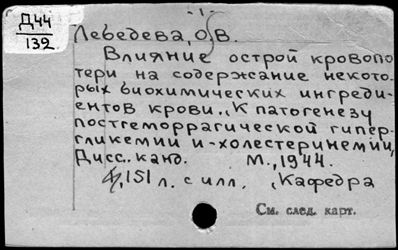 Д44
132
-1-
Лебедева, О.В.
Влияние острой кровопо
тери на содержание некото-
рых биохимических ингреди-
ентов крови „К патогенезу
постгеморрагической гипер-
гликемии и -холестеринемии,
Дисс. канд. М., 1944.
151 л. с илл. , Кафедра
См. след. карт.